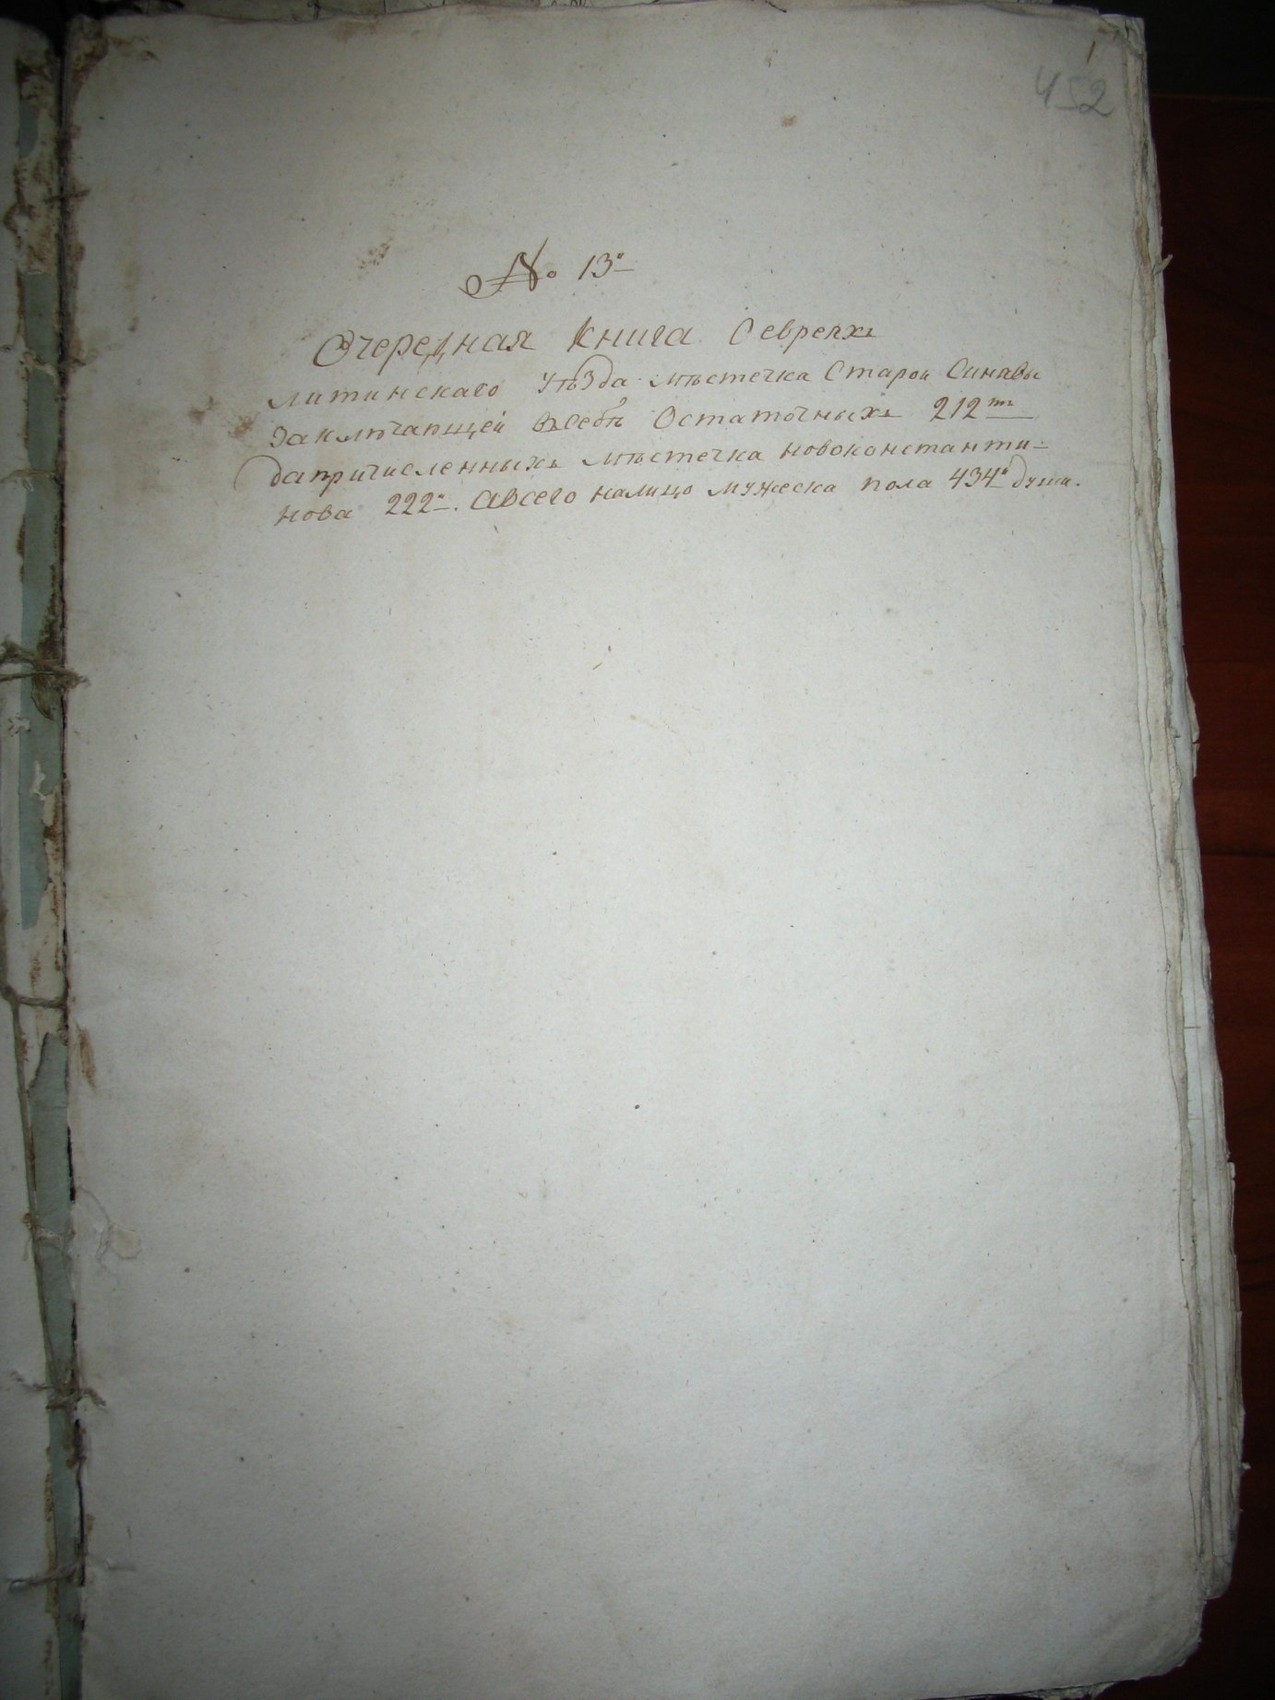 1
452
№ 13й
Очередная книга о евреяхъ
литинскаго уѣзда мѣстечка Старой Синявы
заключающей всебѣ остаточныхъ 212ти
да причисленныхъ мѣстечка новоконстанти-
нова 222й. авсего налицо мужеска пола 434й душъ.